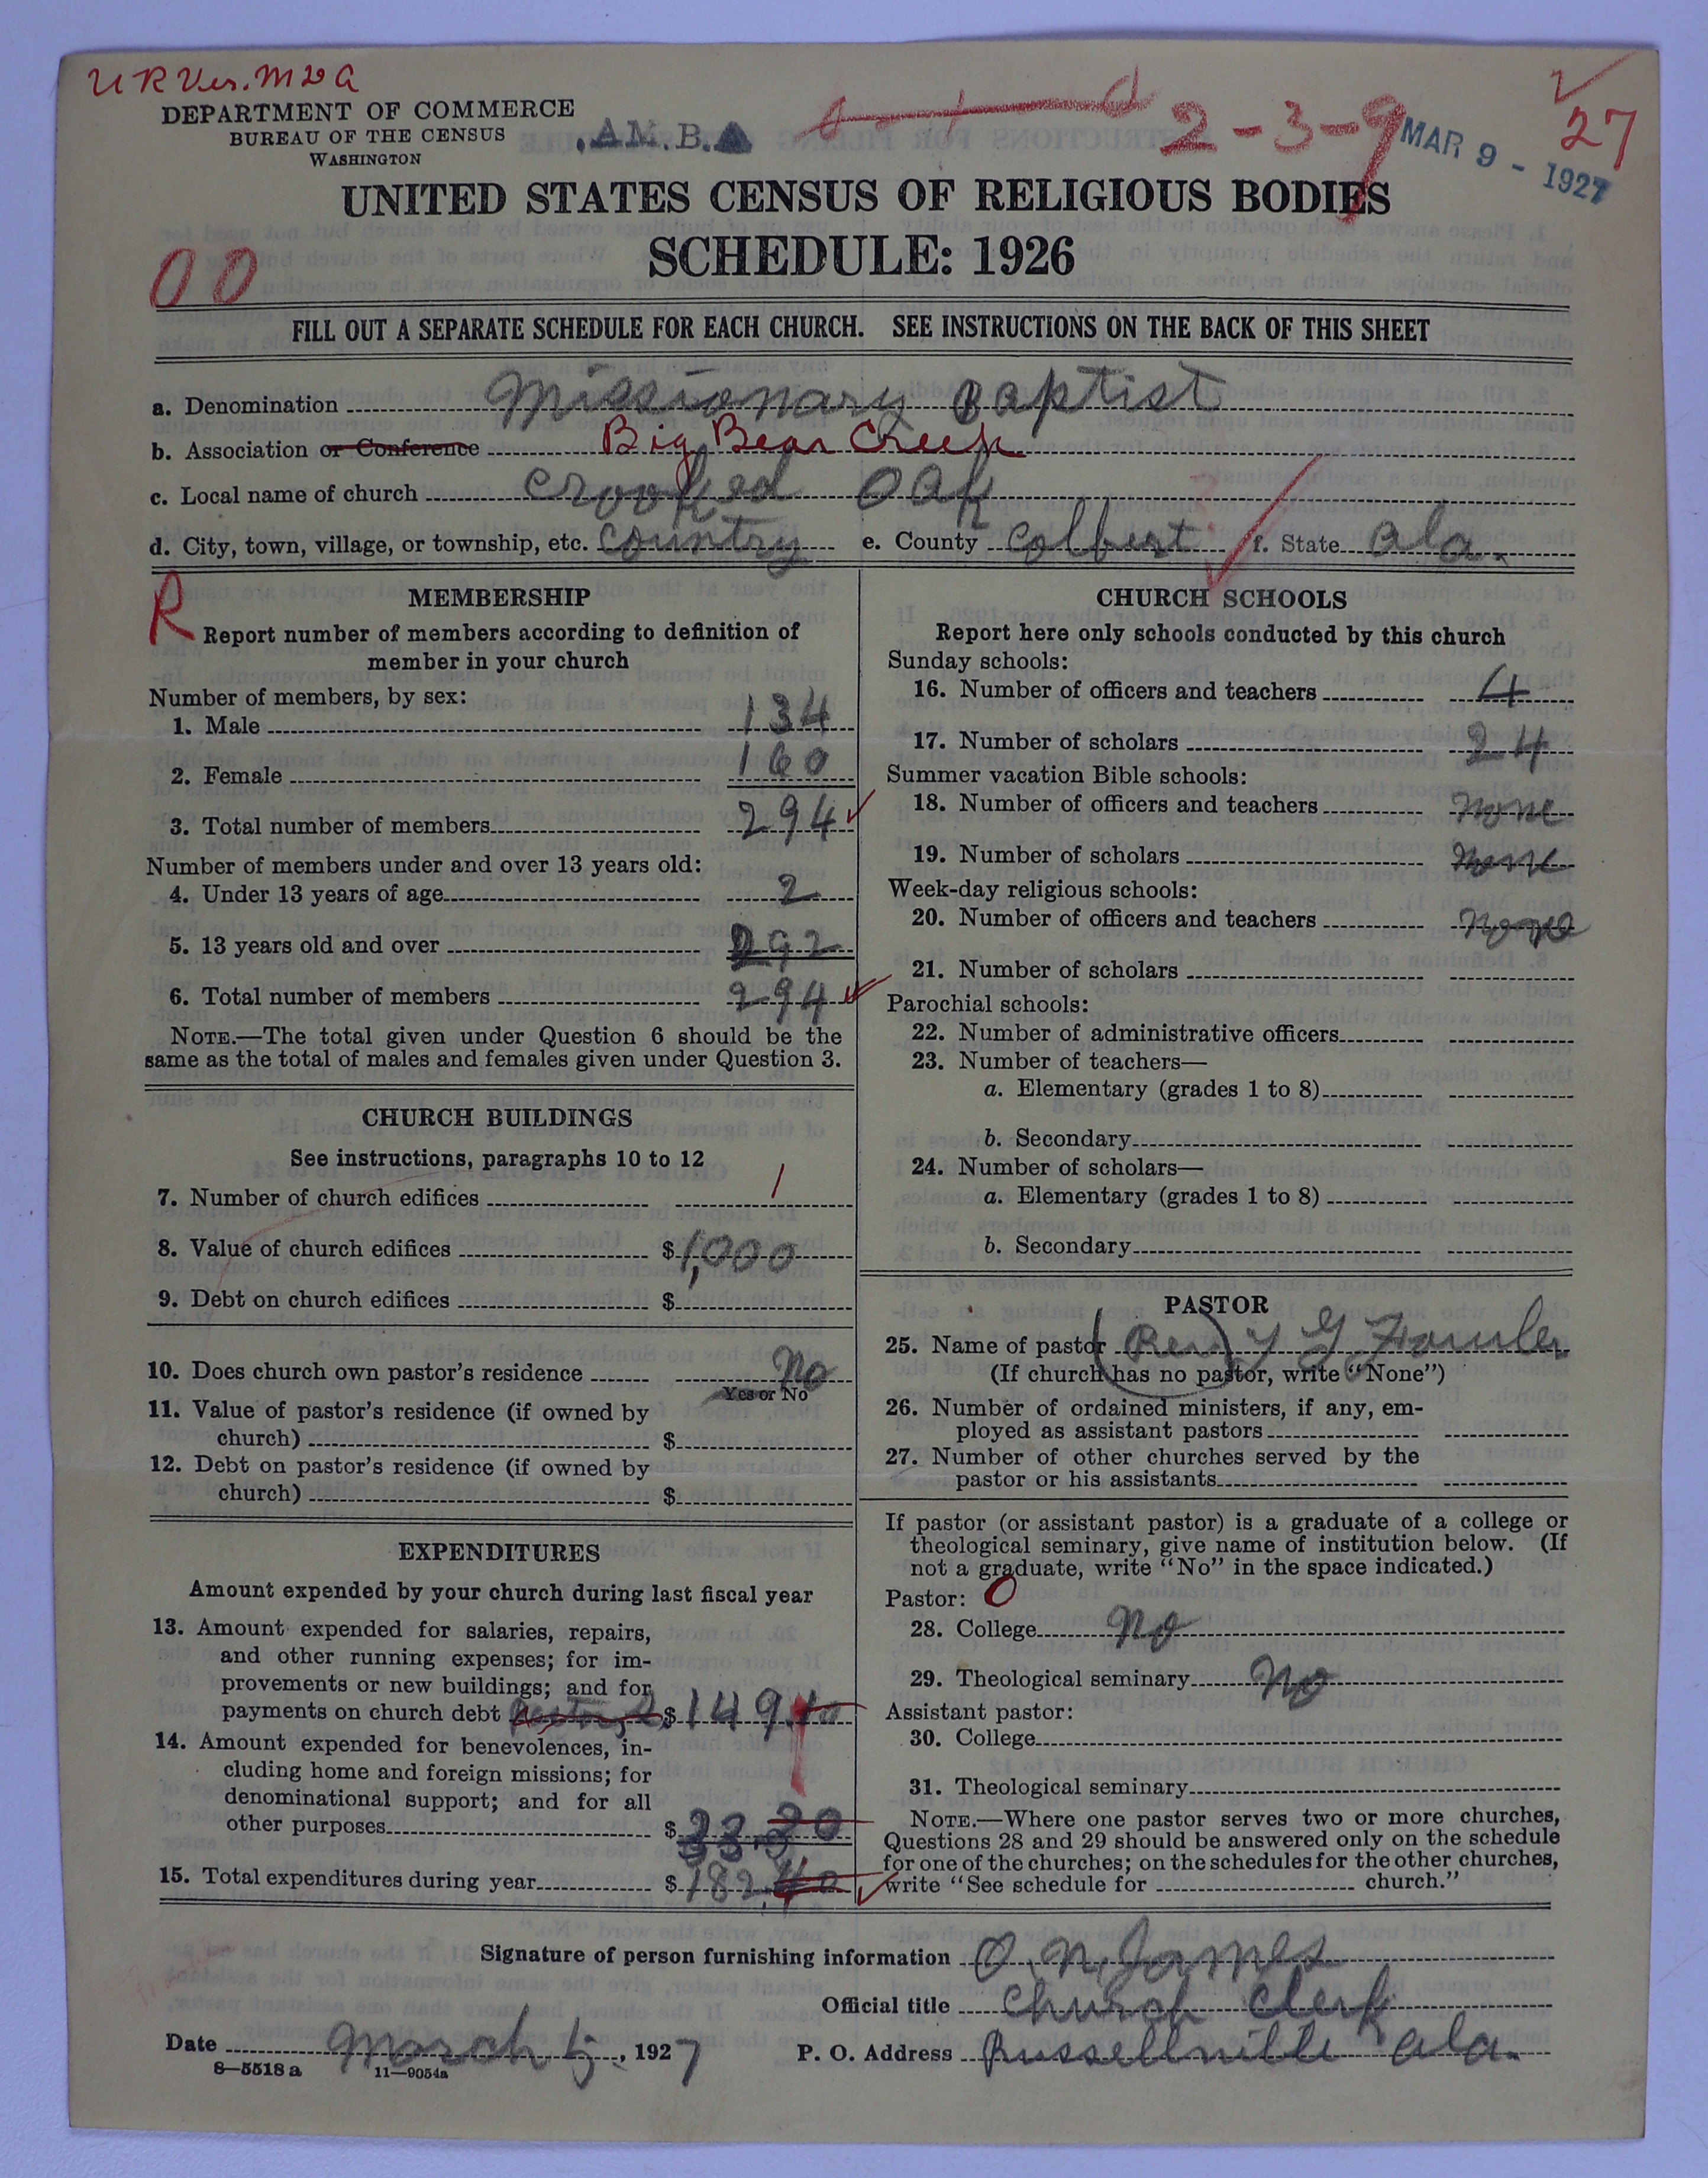 U R Ver. M D A
DEPARTMENT OF COMMERCE
BUREAU OF THE CENSUS
WASHINGTON
AM. B.
2-3-9
MAR 9 - 1927
27
UNITED STATES CENSUS OF RELIGIOUS BODIES
SCHEDULE: 1926
00
FILL OUT A SEPARATE SCHEDULE FOR EACH CHURCH. SEE INSTRUCTIONS ON THE BACK OF THIS SHEET
a. Denomination Missionary Baptist
b. Association or Conference Big Bear Creek
c. Local name of church Crooked Oak
d. City, town, village, or township, etc. Country e. County Colbert f. State Ala.
R
MEMBERSHIP
Report number of members according to definition of
member in your church
Number of members, by sex:
1. Male 134
2. Female 160
3. Total number of members 294
Number of members under and over 13 years old:
4. Under 13 years of age 2
5. 13 years old and over 292
6. Total number of members 294
NOTE.—The total given under Question 6 should be the
same as the total of males and females given under Question 3.
CHURCH BUILDINGS
See instructions, paragraphs 10 to 12
7. Number of church edifices 1
8. Value of church edifices $1,000
9. Debt on church edifices $
10. Does church own pastor's residence No
Yes or No
11. Value of pastor's residence (if owned by
church) $
12. Debt on pastor's residence (if owned by
church) $
EXPENDITURES
Amount expended by your church during last fiscal year
13. Amount expended for salaries, repairs,
and other running expenses; for im-
provements or new buildings; and for
payments on church debt $149.
14. Amount expended for benevolences, in-
cluding home and foreign missions; for
denominational support; and for all
other purposes $33.
15. Total expenditures during year $182.40
CHURCH SCHOOLS
Report here only schools conducted by this church
Sunday schools:
16. Number of officers and teachers 4
17. Number of scholars 24
Summer vacation Bible schools:
18. Number of officers and teachers None
19. Number of scholars None
Week-day religious schools:
20. Number of officers and teachers None
21. Number of scholars
Parochial schools:
22. Number of administrative officers
23. Number of teachers—
a. Elementary (grades 1 to 8)
b. Secondary
24. Number of scholars—
a. Elementary (grades 1 to 8)
b. Secondary
PASTOR
25. Name of pastor (Rev) G Fowler
(If church has no pastor, write "None")
26. Number of ordained ministers, if any, em-
ployed as assistant pastors
27. Number of other churches served by the
pastor or his assistants
If pastor (or assistant pastor) is a graduate of a college or
theological seminary, give name of institution below. (If
not a graduate, write "No" in the space indicated.)
Pastor: O
28. College No
29. Theological seminary No
Assistant pastor:
30. College
31. Theological seminary
NOTE.—Where one pastor serves two or more churches,
Questions 28 and 29 should be answered only on the schedule
for one of the churches; on the schedules for the other churches,
write "See schedule for church."
Signature of person furnishing information O. N. James
Official title Church Clerk
Date March 5, 1927 P. O. Address Russellville Ala.
8—5518 a 11—9054a